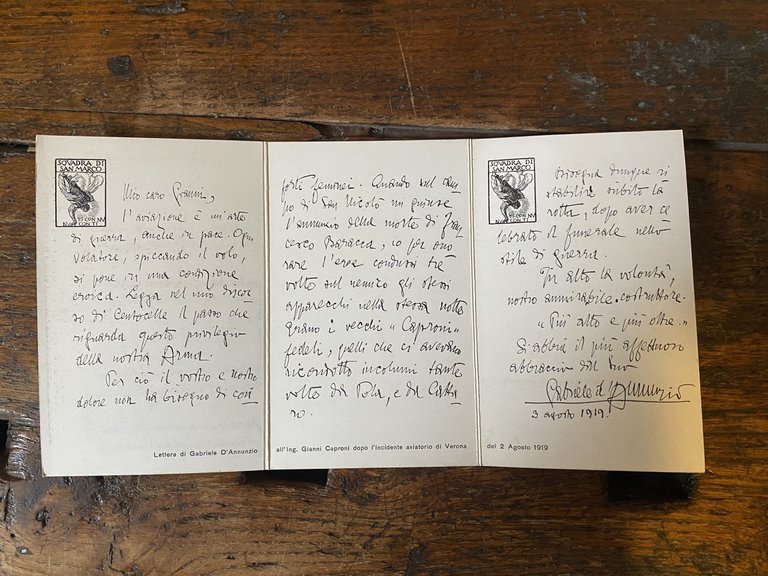 SQVADRA DI
SAN MARCO
TI CON NV
NV CON TI
Mio caro Gianni,
l'aviazione è un'arte
di guerra, anche in pace. Ogni
volatore, spiccando il volo,
si pone in una condizione
eroica. Legga nel mio discor
so di Centocelle il passo che
riguarda questo privilegio
della nostra Arma.
Per ciò il vostro e nostro
dolore non ha bisogno di con
Lettera di Gabriele D'Annunzio
forti feminei. Quando sul cam
po di San Nicolò mi giunse
l'annunzio della morte di Fran
cesco Baracca, io per ono
rare l'eroe condussi tre
volte sul nemico gli stessi
apparecchi nella stessa notte
Erano i vecchi "Caproni"
fedeli, quelli che ci avevano
ricondotto incolumi tante
volte da Pola, e da Catta
ro.
all'Ing. Gianni Caproni dopo l'incidente aviatorio di Verona
SQVADRA DI
SAN MARCO
TI CON NV
NV CON TI
Bisogna dunque ri
stabilire subito la
rotta, dopo aver ce
lebrato il funerale nello
stile di guerra.
In alto la volontà,
nostro ammirabile costruttore.
"Più alto e più oltre."
Si abbia il più affettuoso
abbraccio dal suo
Gabriele d'Annunzio
3 agosto 1919.
del 2 Agosto 1919